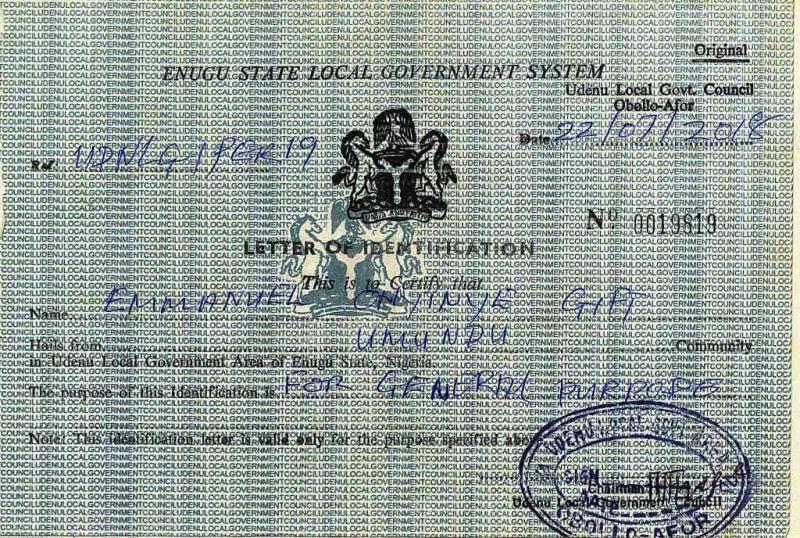 Original
ENUGU STATE LOCAL GOVERNMENT SYSTEM
Udenu Local Govt. Council
Obollo-Afor
Date 22/07/2018
Ref: UDNLG/PER 19
Nº 0019819
LETTER OF IDENTIFICATION
This is to Certify that
Name EMMANUEL ONYINYE GIFT
Hails from UMUNDU Community
in Udenu Local Government Area of Enugu State, Nigeria.
The purpose of this Identification is FOR GENERAL PURPOSE
Note: This identification letter is valid only for the purpose specified above
UDENU LOCAL GOVT
SIGN
Chairman
Udenu Local Government Council
OBOLLO-AFOR